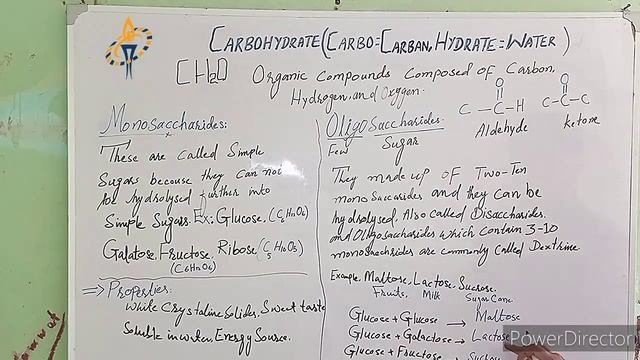 CARBOHYDRATE (CARBO=CARBAN, HYDRATE=WATER)
[CH2O] Organic compounds Composed of Carbon,
Hydrogen, and Oxygen.
Monosaccharides:
These are called Simple
Sugars because they can not
be hydrolysed further into
Simple Sugars. Ex: Glucose, (C6H12O6)
Galatose, Fructose, Ribose (C5H10O5)
(C6H12O6)
⇒ Properties:
White Crystaline Solides, Sweet taste
Soluble in water, Energy Source.
Oligosaccharides.
Few Sugar
O
C - C - H
Aldehyde
O
C - C - C
ketone
They made up of Two-Ten
monosaccarides and they can be
hydrolysed, Also called Disaccharides.
and Oligosaccharides which contain 3-10
monosaccharides are commonly called Dextrine
Example. Maltose, Lactose, Sucrose.
Fruits. Milk Sugar Cane.
Glucose + Glucose → Maltose
Glucose + Galactose → Lactose
Glucose + Fructose → Sucrose
PowerDirector